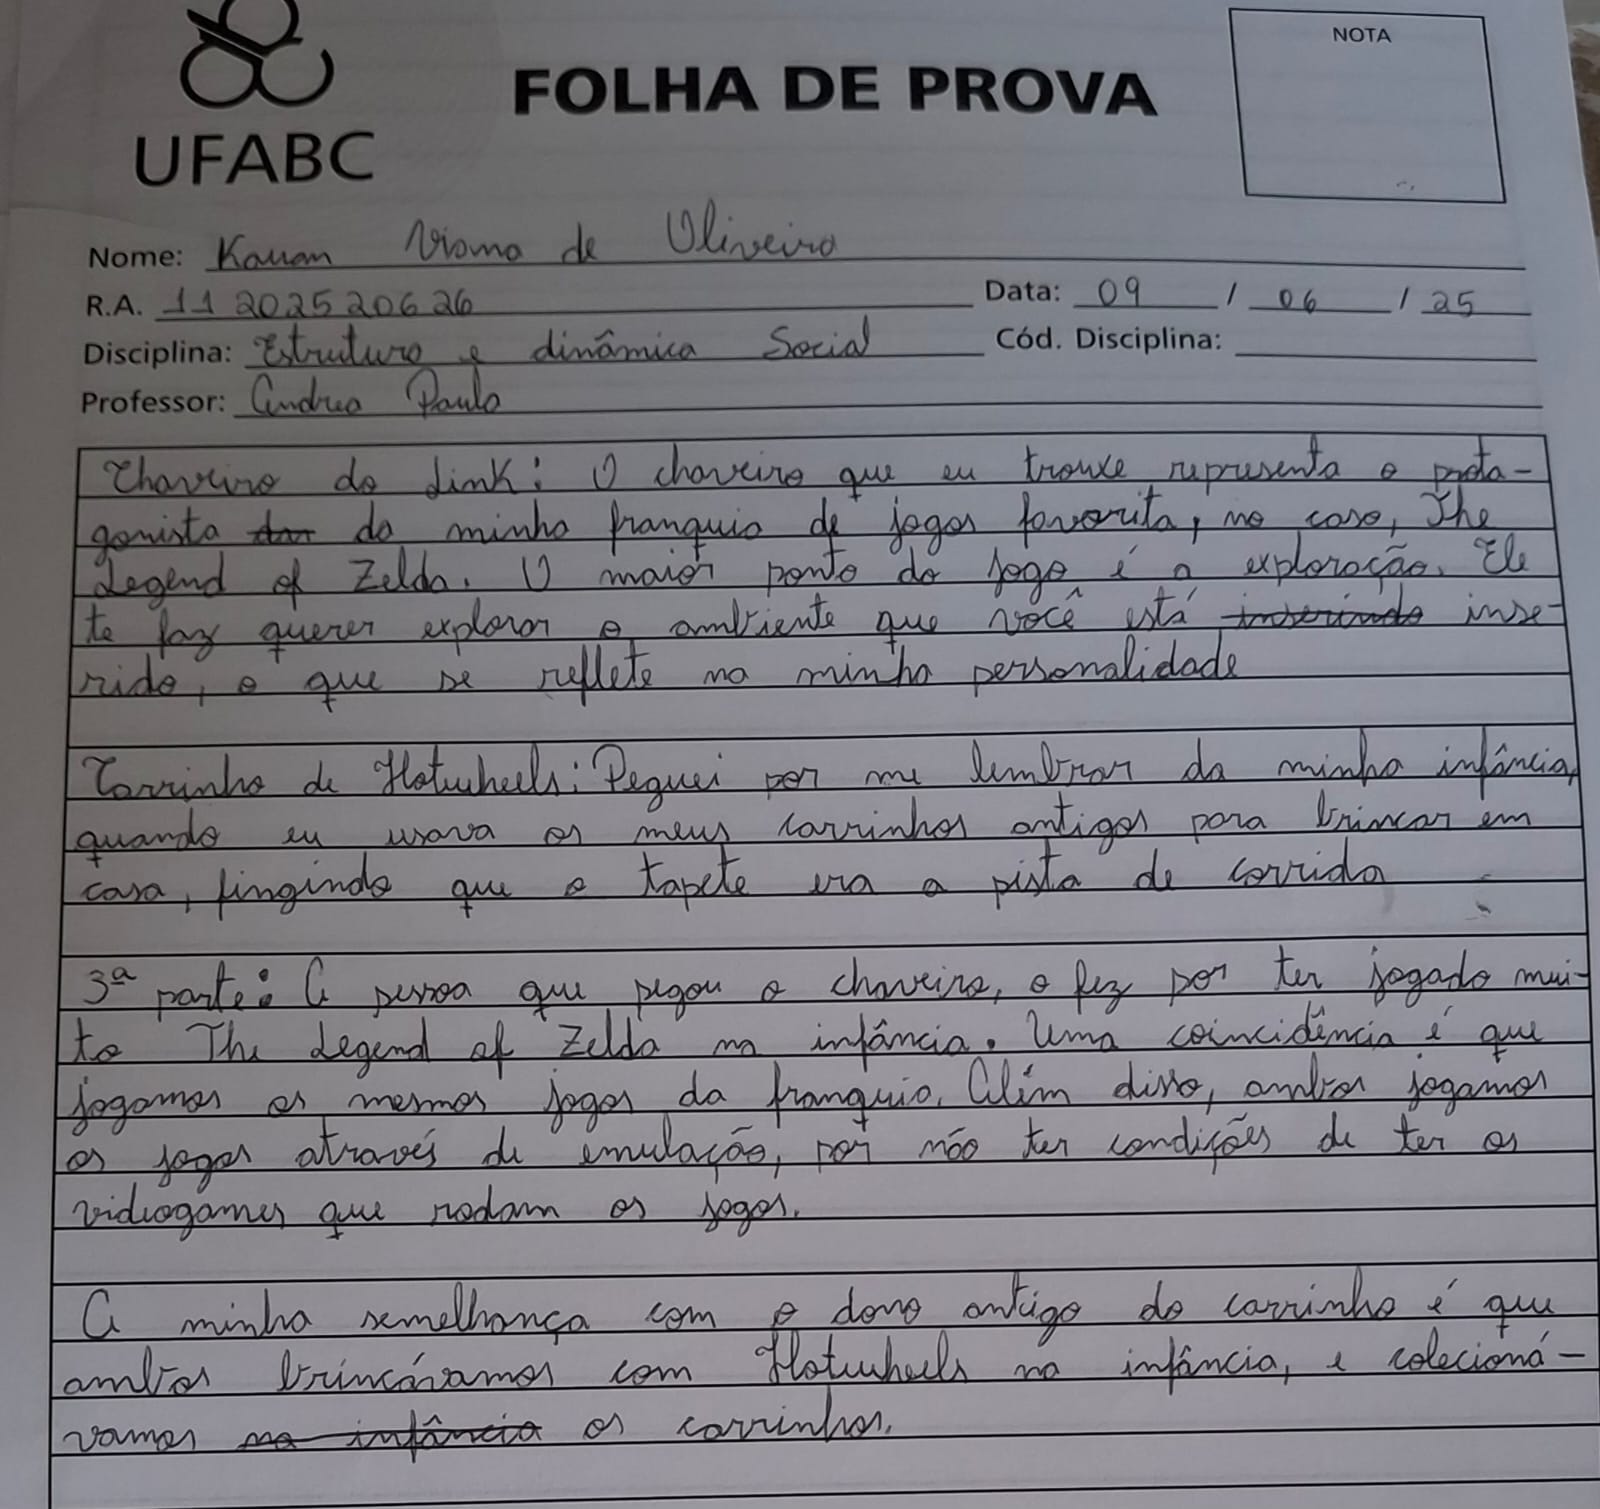 UFABC
FOLHA DE PROVA
NOTA
Nome: Kauan Viana de Oliveira
R.A. 11202520626 Data: 09 / 06 / 25
Disciplina: Estrutura e dinâmica Social Cód. Disciplina:
Professor: Andrea Paula
Chaveiro do Link: O chaveiro que eu trouxe representa o prota-
gonista da minha franquia de jogos favorita, no caso, The
Legend of Zelda. O maior ponto do jogo é a exploração. Ele
te faz querer explorar o ambiente que você está inserindo inse-
rido, o que se reflete na minha personalidade
Carrinho de Hotwheels: Peguei por me lembrar da minha infância,
quando eu usava os meus carrinhos antigos para brincar em
casa, fingindo que o tapete era a pista de corrida
3ª parte: A pessoa que pegou o chaveiro, o fez por ter jogado mui-
to The Legend of Zelda na infância. Uma coincidência é que
jogamos os mesmos jogos da franquia. Além disso, ambos jogamos
os jogos através de emulação, por não ter condições de ter os
videogames que rodam os jogos.
A minha semelhança com o dono antigo do carrinho é que
ambos brincávamos com Hotwheels na infância, e colecioná-
vamos na infância os carrinhos.